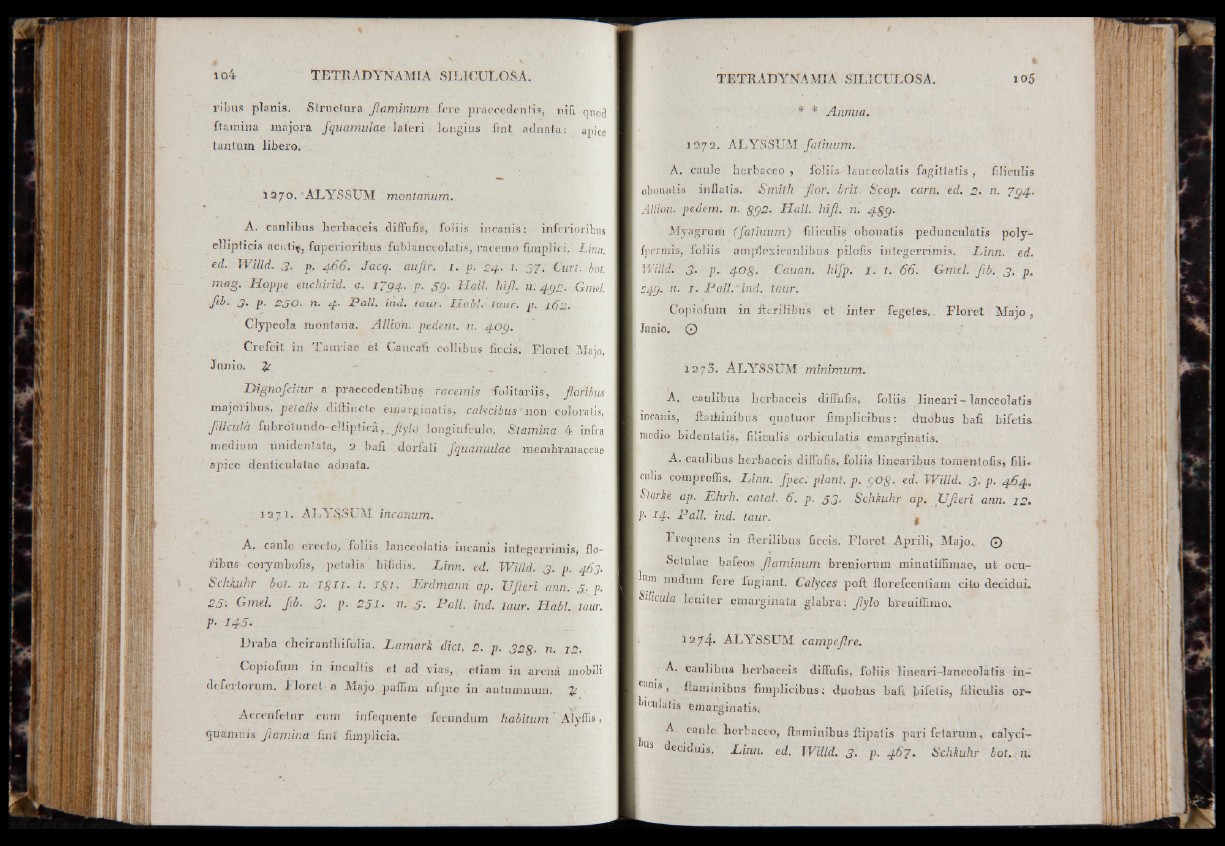 104 TETRADYNAMIA SILICULOSA.
ribus planis. Structura ſtaminum fere praecedentis, niſi quod
ſtamina majora ſquamulae lateri longius ſint adnata: apice
tantum libero.
1270. ALYSSUM montanum.
A. caulibus herbaceis diffuſis, foliis incanis: inferioribus
ellipticis acutis, ſuperioribus ſublanceolatis, racemo ſimplici. Linn.
ed. Willd. 3. p. 466. Jacq. auſtr. 1. p. 24. t. 37. Curt. bot.
mag. Hoppe enchirid. a. 1794. p. 59. Hall. hiſt. n. 492. Gmel.
ſib. 3. p. 250. n. 4. Pall. ind. taur. Habl. taur. p. 162.
Clypeola montana. Allion. pedem. n. 409.
Creſcit in Tauriae et Caucaſi collibus ſiccis. Floret Majo,
Junio. ♃
Dignoſcitur a praecedentibus racemis ſolitariis, floribus
majoribus, petalis diſtincte emarginatis, calycibus non coloratis,
ſiliculâ ſubrotundo-ellipticâ, ſtylo longiuſculo. Stamina 4 infra
medium unidentata, 2 baſi dorſali ſquamulae membranaceae
apice denticulatae adnata.
1271. ALYSSUM incanum.
A. caule erecto, foliis lanceolatis incanis integerrimis, flo-
ribus corymboſis, petalis bifidis. Linn. ed. Willd. 3. p. 463.
Schkuhr bot. n. 1811. t. 181. Erdmann ap. Uſteri ann. 5. p.
25. Gmel. ſib. 3. p. 251. n. 5. Pall. ind. taur. Habl. taur.
p. 145.
Draba cheiranthifolia. Lamark dict. 2. p. 328. n. 12.
Copioſum in incultis et ad vias, etiam in arenâ mobili
deſertorum. Floret a Majo paſſim uſque in autumnum. ♃
Accenſetur cum inſequente ſecundum habitum Alyſſis,
quamuis ſtamina ſint ſimplicia.
TETRADYNAMIA SILICULOSA. 105
* * Annua.
1272. ALYSSUM ſatiuum.
A. caule herbaceo, foliis lanceolatis ſagittatis, ſiliculis
obouatis inflatis. Smith flor. brit. Scop. carn. ed. 2. n. 794.
Allion. pedem. n. 892. Hall. hiſt. n. 489.
Myagrum (ſatiuum) ſiliculis obouatis pedunculatis poly-
ſpermis, foliis amplexicaulibus piloſis integerrimis. Linn. ed.
Willd. 3. p. 408. Cauan. hiſp. 1. t. 66. Gmel. ſib. 3. p.
249. n. 1. Pall. ind. taur.
Copioſum in ſterilibus et inter ſegetes. Floret Majo,
Junio. ☉
1273. ALYSSUM minimum.
A. caulibus herbaceis diffuſis, foliis lineari-lanceolatis
incanis, ſtaminibus quatuor ſimplicibus: duobus baſi biſetis
medio bidentatis, ſiliculis orbiculatis emarginatis.
A. caulibus herbaceis diffuſis, foliis linearibus tomentoſis, ſili-
culis compreſſis. Linn. ſpec. plant. p. 908. ed. Willd. 3. p. 464.
Starke ap. Ehrh. catal. 6. p. 53. Schkuhr ap. Uſteri ann. 12.
p. 14. Pall. ind. taur.
Frequens in ſterilibus ſiccis. Floret Aprili, Majo. ☉
Setulae baſeos ſtaminum breniorum minutiſſimae, ut ocu-
lum nudum fere fugiant. Calyces poſt floreſcentiam cito decidui.
Silicula leuiter emarginata glabra: ſtylo breuiſſimo.
1274. ALYSSUM campeſtre.
A. caulibus herbaceis diffuſis, foliis lineari-lanceolatis in-
canis, ſtaminibus ſimplicibus: duobus baſi biſetis, ſiliculis or-
biculatis emarginatis.
A. caule herbaceo, ſtaminibus ſtipatis pari ſetarum, calyci-
bus deciduis. Linn. ed. Willd. 3. p. 467. Schkuhr bot. n.